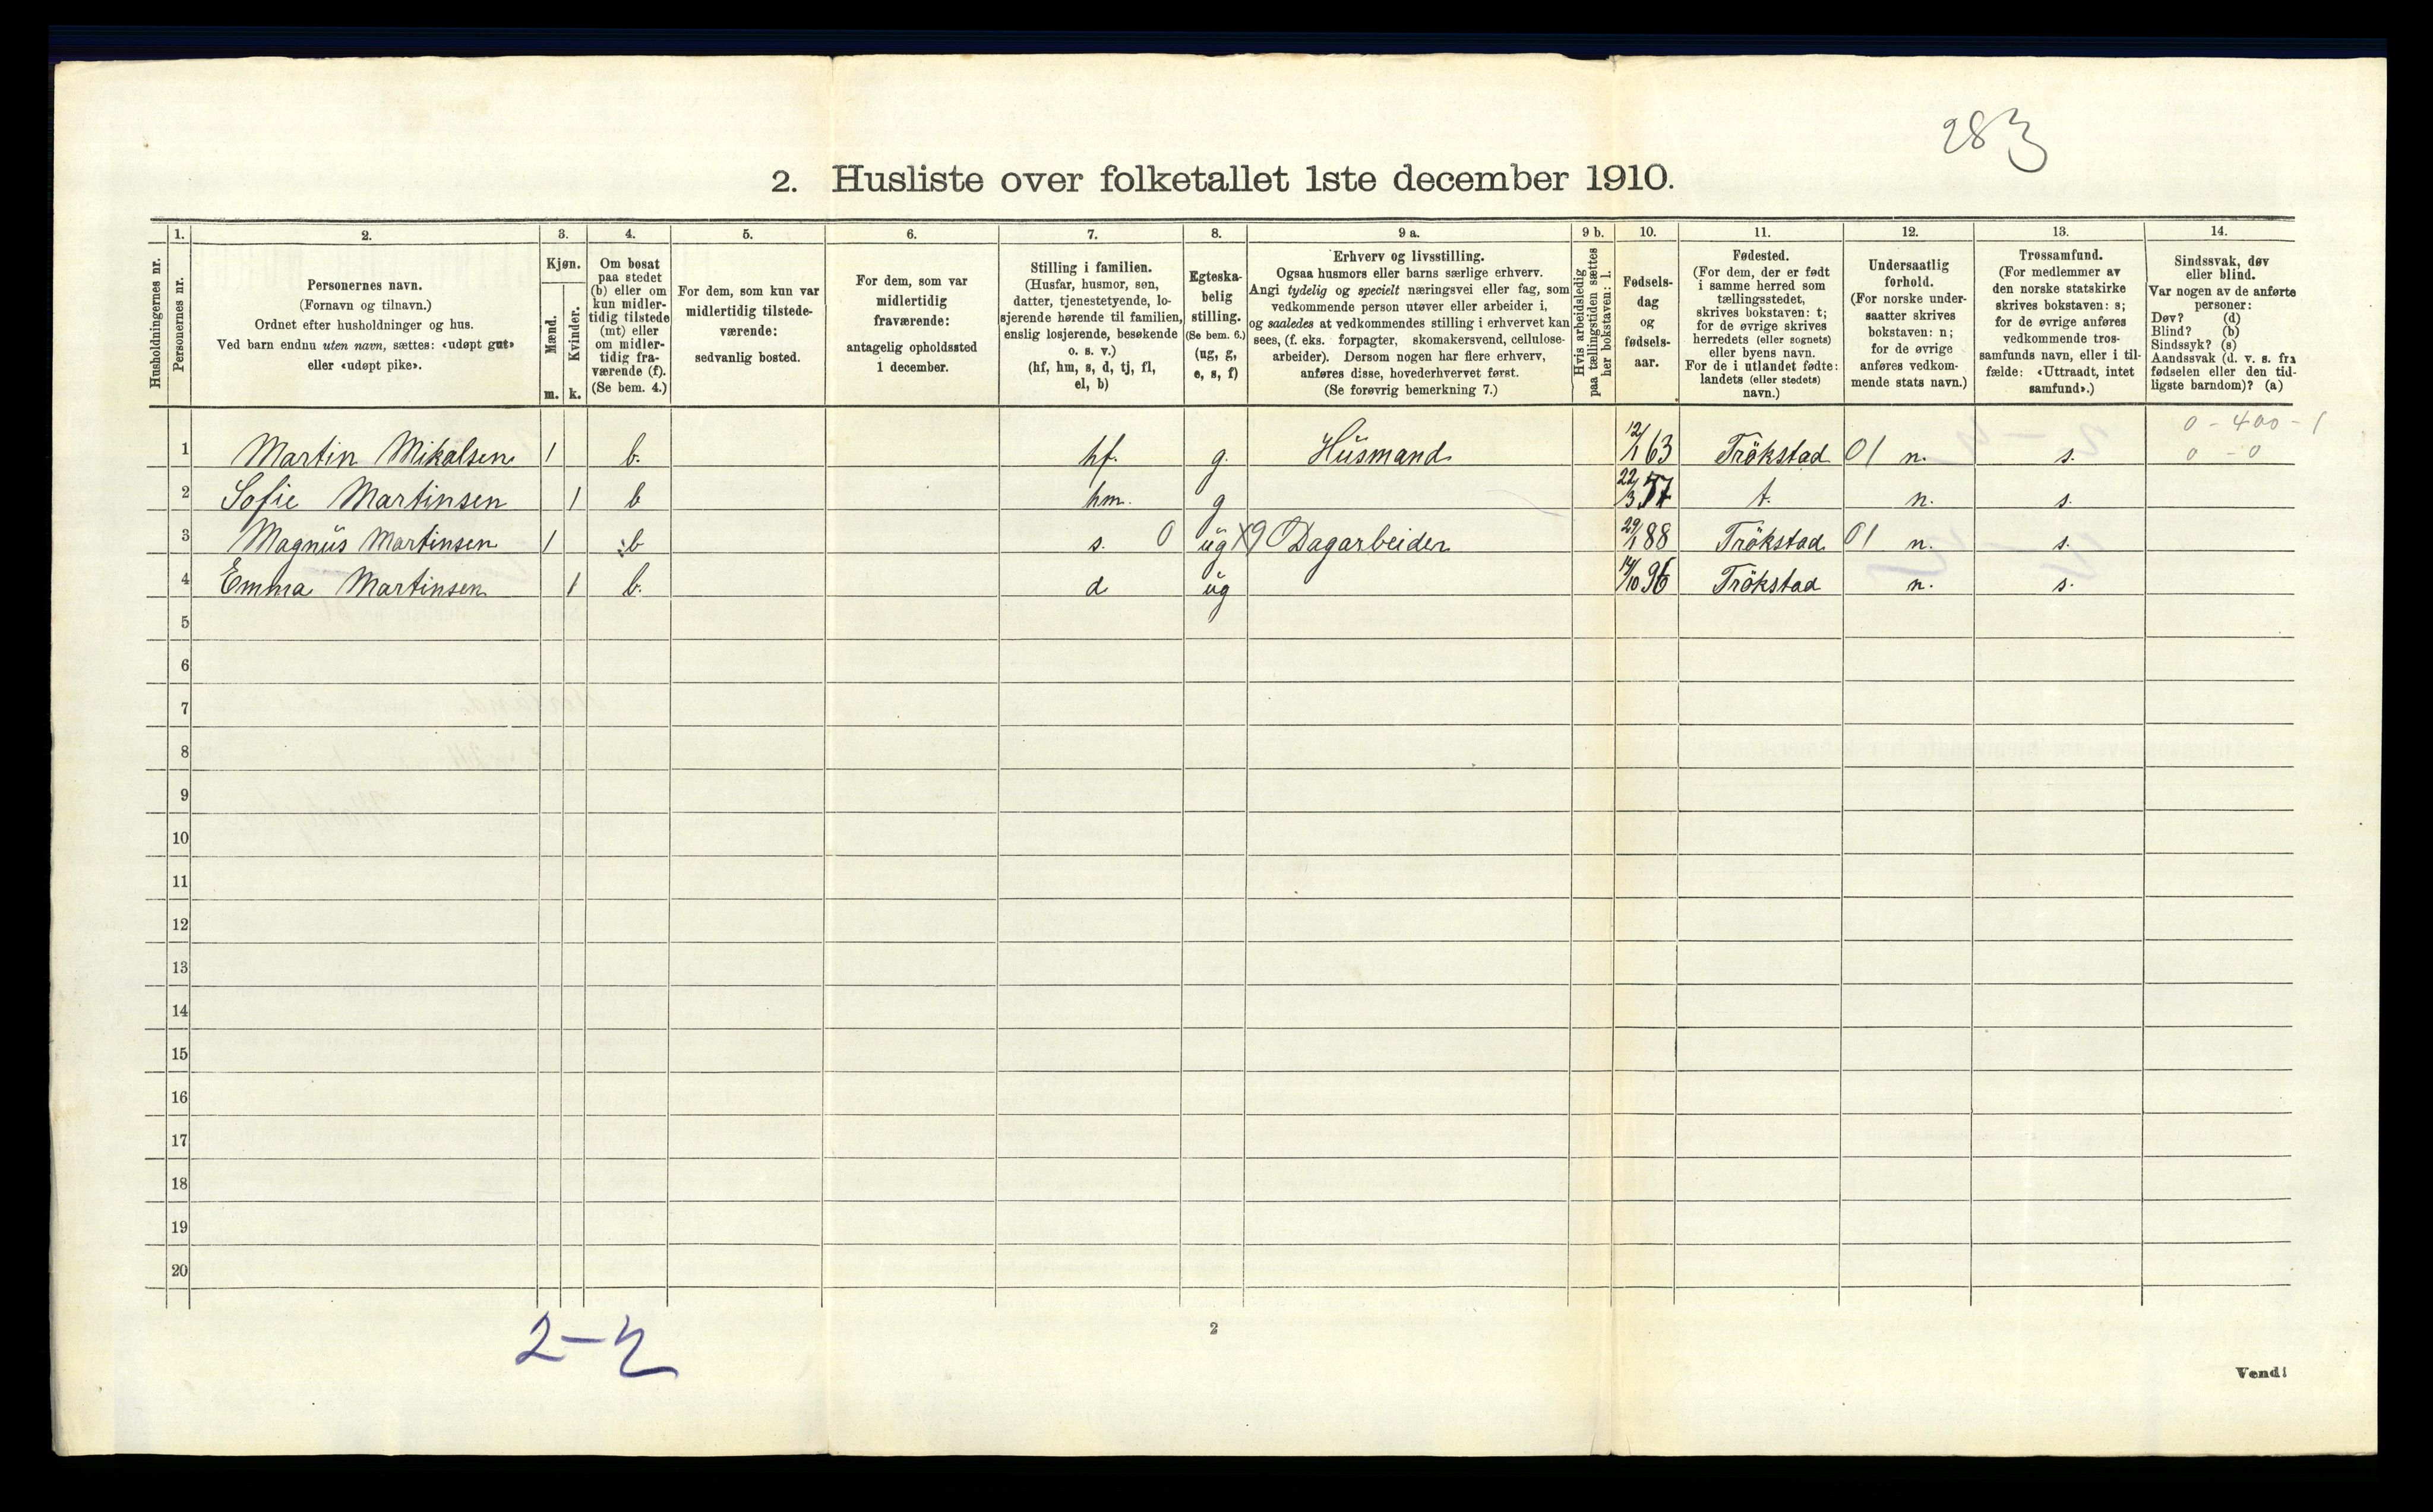 283
2. Husliste over folketallet 1ste december 1910.
Husholdningernes nr.
1.
Personernes nr.
2.
Personernes navn.
(Fornavn og tilnavn.)
Ordnet efter husholdninger og hus.
Ved barn endnu uten navn, sættes: «udøpt gut»
eller «udøpt pike».
3.
Kjøn.
Mænd.
m.
Kvinder.
k.
4.
Om bosat
paa stedet
(b) eller om
kun midler-
tidig tilstede
(mt) eller
om midler-
tidig fra-
værende (f).
(Se bem. 4.)
5.
For dem, som kun var
midlertidig tilstede-
værende:
sedvanlig bosted.
6.
For dem, som var
midlertidig
fraværende:
antagelig opholdssted
1 december.
7.
Stilling i familien.
(Husfar, husmor, søn,
datter, tjenestetyende, lo-
sjerende hørende til familien,
enslig losjerende, besøkende
o. s. v.)
(hf, hm, s, d, tj, fl,
el, b)
8.
Egteska-
belig
stilling.
(Se bem. 6.)
(ug, g,
e, s, f)
9 a.
Erhverv og livsstilling.
Ogsaa husmors eller barns særlige erhverv.
Angi tydelig og specielt næringsvei eller fag, som
vedkommende person utøver eller arbeider i,
og saaledes at vedkommendes stilling i erhvervet kan
sees, (f. eks. forpagter, skomakersvend, cellulose-
arbeider). Dersom nogen har flere erhverv,
anføres disse, hovederhvervet først.
(Se forøvrig bemerkning 7.)
9 b.
Hvis arbeidsledig
paa tællingstiden sættes
her bokstaven: l.
10.
Fødsels-
dag
og
fødsels-
aar.
11.
Fødested.
(For dem, der er født
i samme herred som
tællingsstedet,
skrives bokstaven: t;
for de øvrige skrives
herredets (eller sognets)
eller byens navn.
For de i utlandet fødte:
landets (eller stedets)
navn.)
12.
Undersaatlig
forhold.
(For norske under-
saatter skrives
bokstaven: n;
for de øvrige
anføres vedkom-
mende stats navn.)
13.
Trossamfund.
(For medlemmer av
den norske statskirke
skrives bokstaven: s;
for de øvrige anføres
vedkommende tros-
samfunds navn, eller i til-
fælde: «Uttraadt, intet
samfund».)
14.
Sindssvak, døv
eller blind.
Var nogen av de anførte
personer:
Døv? (d)
Blind? (b)
Sindssyk? (s)
Aandssvak (d. v. s. fra
fødselen eller den tid-
ligste barndom)? (a)
0 - 400 - 1
1 Martin Mikalsen 1 b. hf. g. Husmand 12/1 63 Trökstad 01 n. s. 0 - 0
2 Sofie Martinsen 1 b hm. g 22/3 57 t. n. s.
3 Magnus Martinsen 1 b s. 0 ug X9 Dagarbeider 29/1 88 Trökstad 01 n. s.
4 Emma Martinsen 1 b. d ug 14/10 96 Trökstad n. s.
5
6
7
8
9
10
11
12
13
14
15
16
17
18
19
20
2-2
2
Vend!